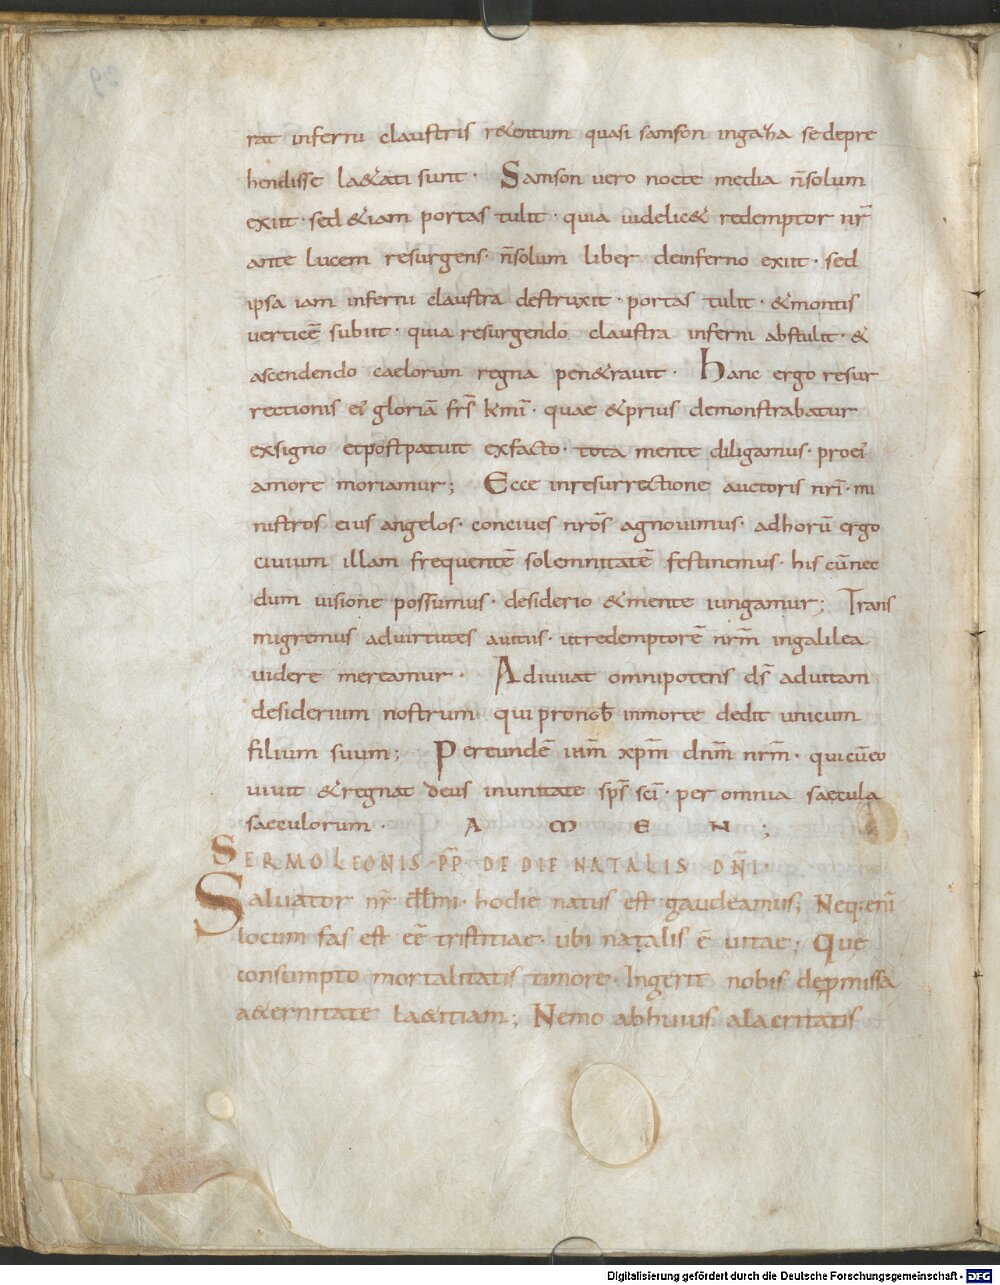 rat inferni claustris retentum quasi samson ingaza se depre
hendisse laetati sunt · Samson vero nocte media ñsolum
exiit · sed &iam portas tulit · quia uidelic& redemptor nr̄
ante lucem resurgens · ñsolum liber deinferno exiit · sed
ipsa iam inferni claustra destruxit · portas tulit · &montis
uerticē subiit · quia resurgendo claustra inferni abstulit · &
ascendendo caelorum regna pen&rauit · Hanc ergo resur
rectionis ei' gloriā frs̄ kmī · quae &prius demonstrabatur
exsigno etpostpatuit exfacto · tota mente diligamus · proei'
amore moriamur; Ecce inresurrectione auctoris nrī · mi
nistros eius angelos · conciues nrōs agnouimus · adhorū ergo
ciuium illam frequentē solemnitatē festinemus · his cūnec
dum uisione possumus · desiderio &mente iungamur; Trans
migremus aduirtutes auitiis · utredemptorē nrm̄ ingalilea
uidere mereamur · Adiuuat omnipotens ds̄ aduitam
desiderium nostrum qui pronob̄ inmorte dedit unicum
filium suum; Pereundē ihm̄ xpm̄ dnm̄ nrm̄ · quicūeo
uiuit &regnat deus inunitate sps̄ scī · per omnia saecula
saeculorum · A M E N ;
SERMO LEONIS PP̄ DE DIE NATALIS DN̄I ·
Saluator nr̄ dll̄mi · hodie natus est gaudeamus; Neq; enī
locum fas est eē tristitiae · ubi natalis ē uitae; Que
consumpto mortalitatis timore · Ingerit nobis depmissa
a&ernitate la&itiam; Nemo abhuius alacritatis
Digitalisierung gefördert durch die Deutsche Forschungsgemeinschaft - DFG